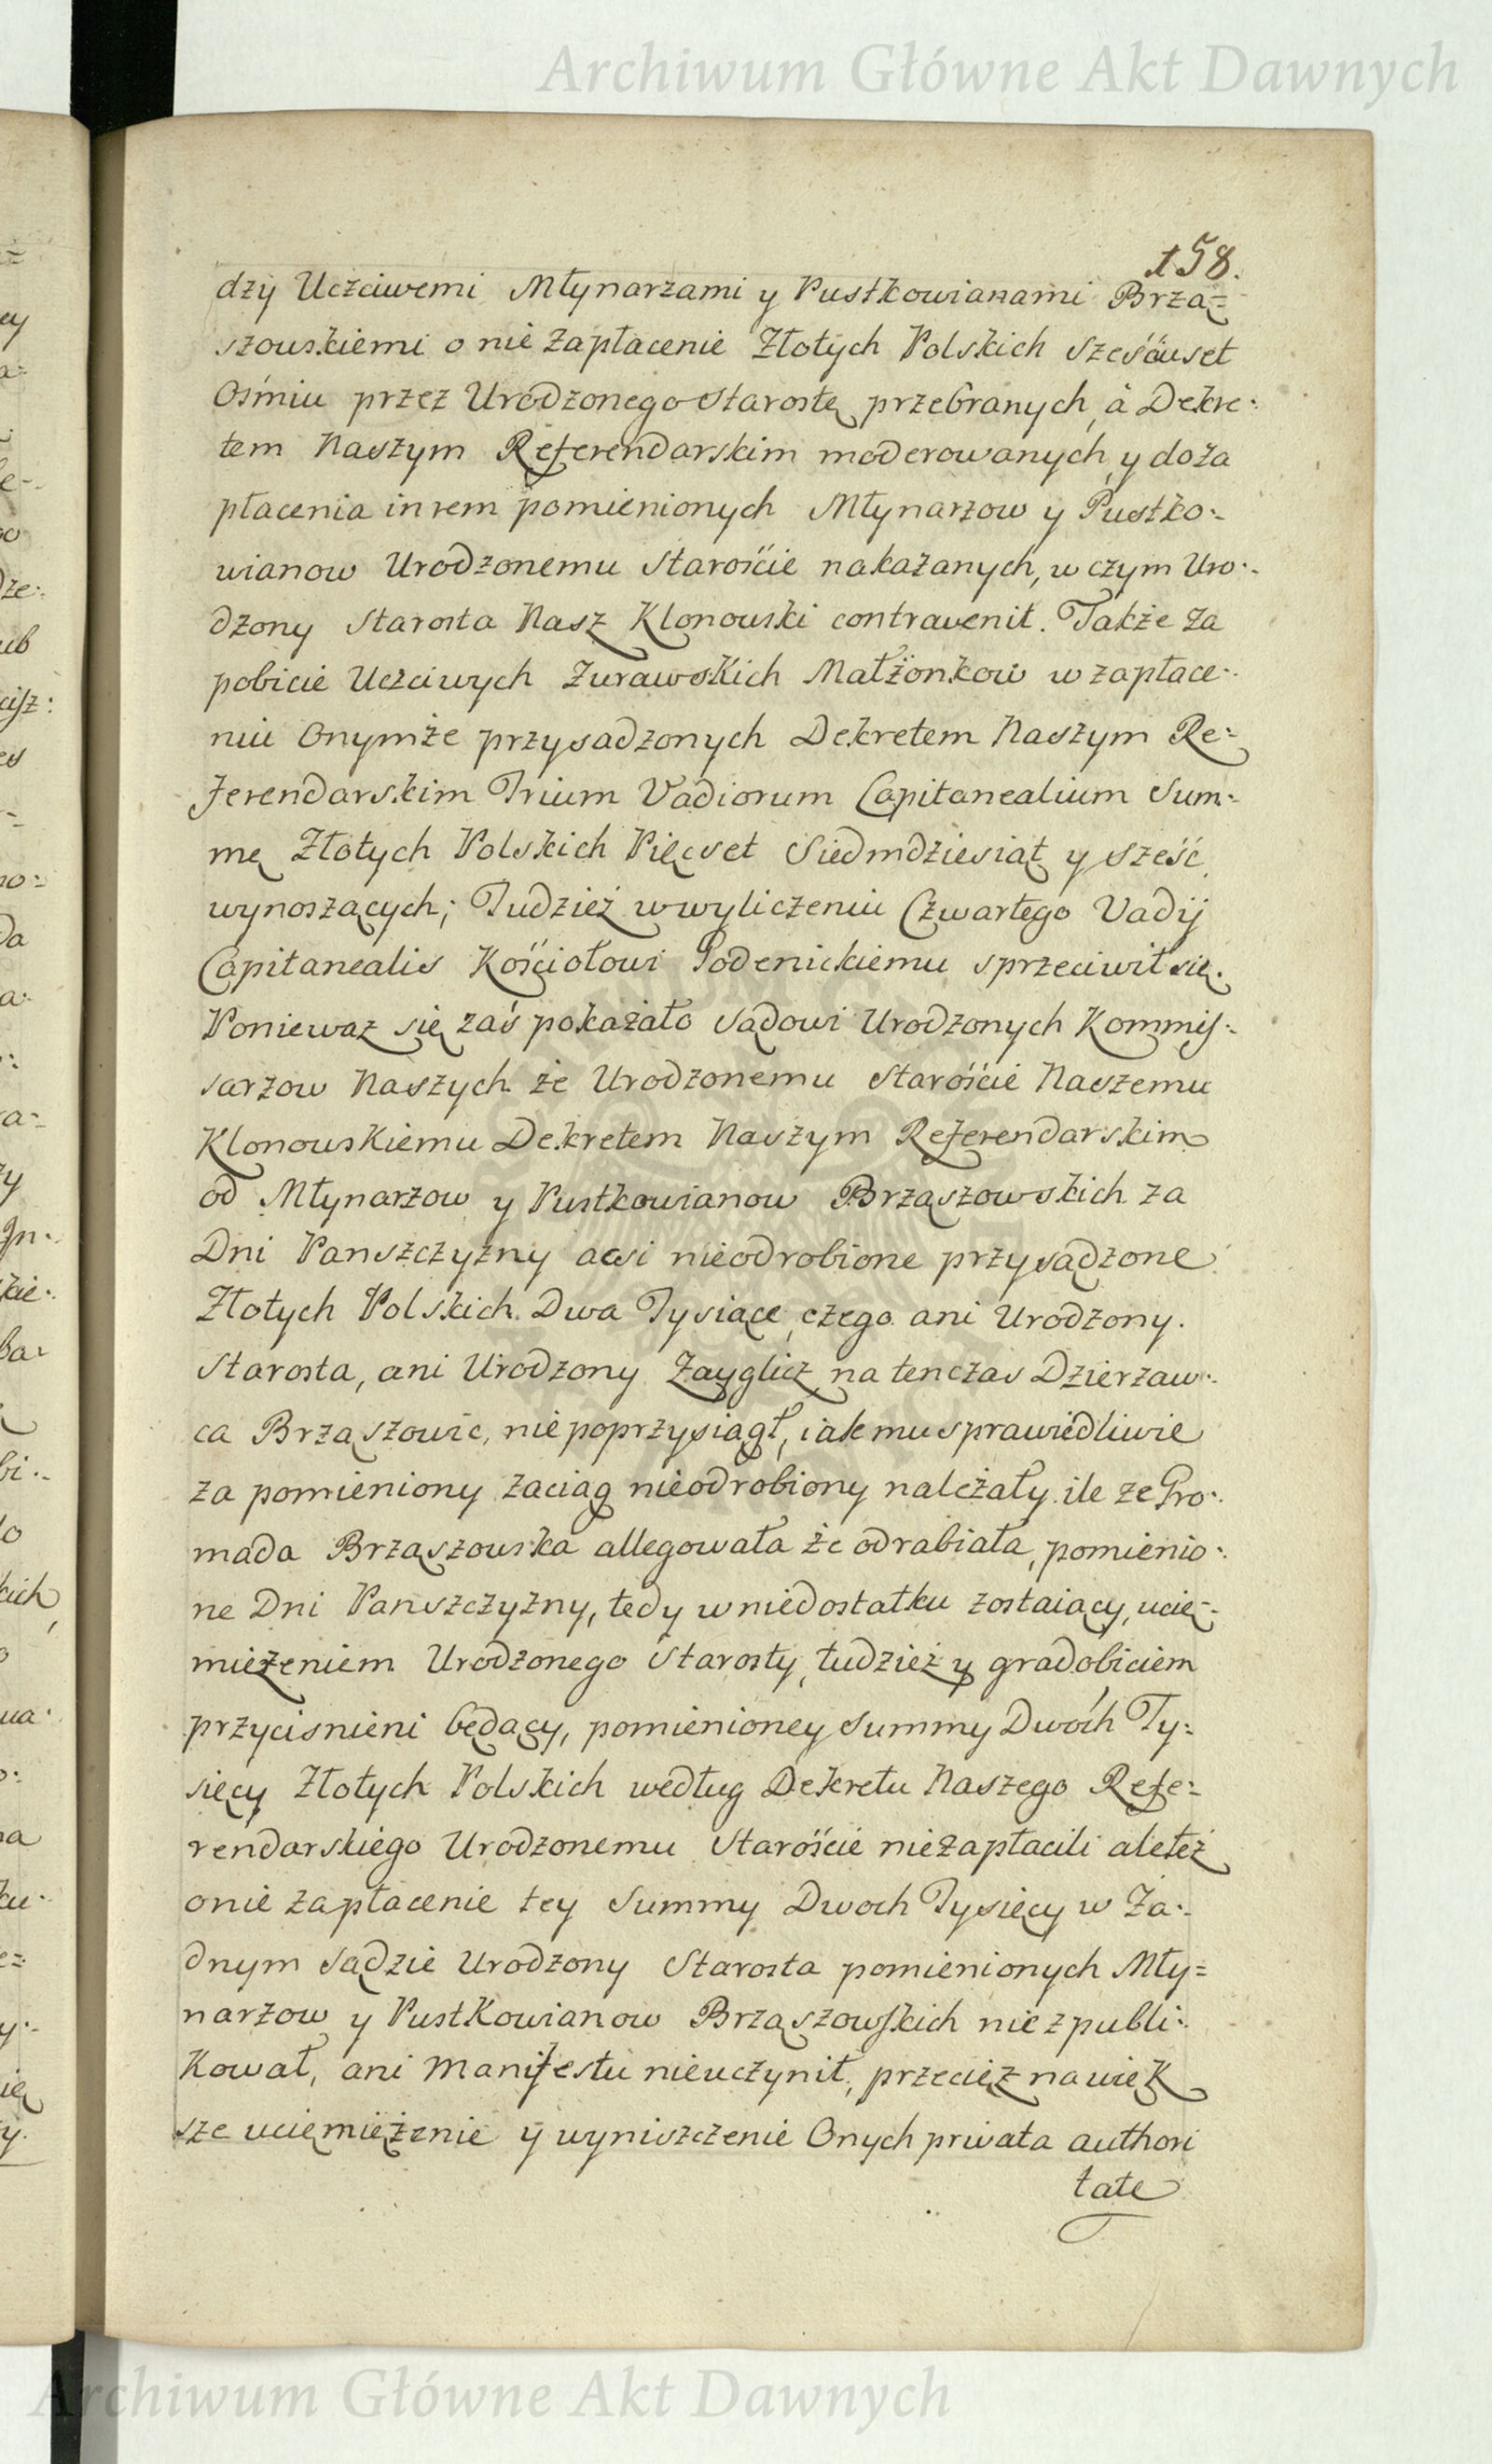 Archiwum Główne Akt Dawnych
158.
dzy Uczciwemi Młynarzami y Pustkowianami Brzą=
szouskiemi o nie zapłacenie Złotych Polskich sześćuset
Osmiu przez Urodzonego Starostę przebranych, à Dekre:
tem Naszym Referendarskim moderowanych, y doza
płacenia in rem pomienionych Młynarzow y Pustko:
wianow Urodzonemu Staroście nakazanych, w czym Uro:
dzony Starosta Nasz Klonouski contravenit. Także za
pobicie Uczciwych Zurawskich Małżonkow w zapłace:
niu Onymże przysadzonych Dekretem Naszym Re=
ferendarskim Trium Vadiorum Capitanealium Sum:
mę Złotych Polskich Pięcset Siedmdziesiąt y sześć
wynoszących; Tudzież w wyliczeniu Czwartego Vadij
Capitanealis Kościołowi Godenickiemu sprzeciwił się.
Ponieważ się zaś pokazało Sądowi Urodzonych Kommis:
sarzow Naszych że Urodzonemu Starościе Naszemu
Klonouskiemu Dekretem Naszym Referendarskim
od Młynarzow y Pustkowianow Brząszowskich za
Dni Panszczyzny acsi nieodrobione przysądzone
Złotych Polskich Dwa Tysiące, czego ani Urodzony.
Starosta, ani Urodzony Zayglicz na tenczas Dzierzaw:
ca Brząszowic, nie poprzysiągł, iak mu sprawiedliwie
za pomieniony zaciąg nieodrobiony należały ile ze Gro:
mada Brząszouska allegowała że odrabiała, pomienio:
ne Dni Panszczyzny, tedy w niedostatku zostaiący, ucię:
mięzeniem Urodzonego Starosty, tudzież y gradobiciem
przycisnieni będący, pomienioney Summy Dwóch Ty:
sięcy Złotych Polskich według Dekretu Naszego Refe:
rendarskiego Urodzonemu Starościе niezapłacili aleteż
onie zapłacenie tey Summy Dwoch Tysięcy w Ża:
dnym Sądzie Urodzony Starosta pomienionych Mły=
narzow y Pustkowianow Brząszowskich nie zpubli:
kował, ani Manifestu nieuczynił, przecież na więk
sze uciemiężenie y wyniszczenie Onych privata authori
tate
Archiwum Główne Akt Dawnych